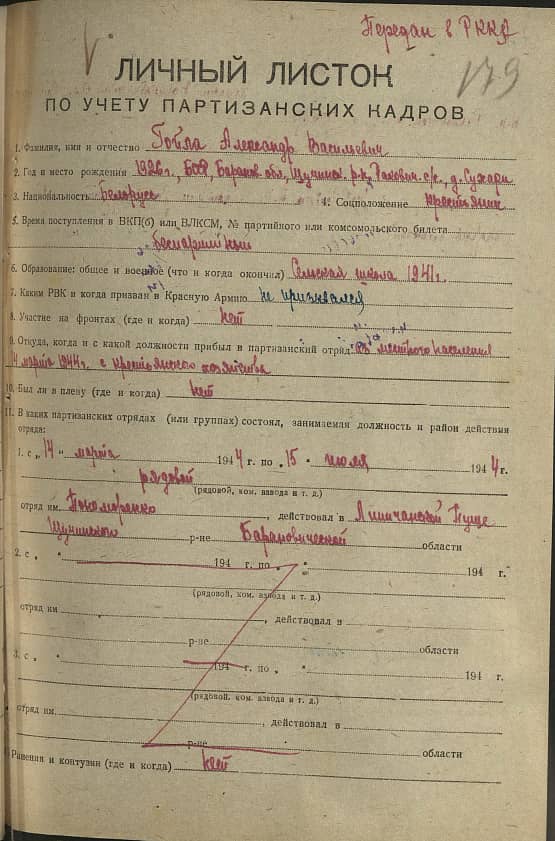 Передан в РККА
V
179
ЛИЧНЫЙ ЛИСТОК
ПО УЧЕТУ ПАРТИЗАНСКИХ КАДРОВ
1. Фамилия, имя и отчество Гойла Александр Васильевич
2. Год и место рождения 1926г., БССР, Баранов. обл., Щучинск. р-н, с/с, д. Сухари
3. Национальность Белорусс 4. Соцположение крестьянин
5. Время поступления в ВКП(б) или ВЛКСМ, № партийного или комсомольского билета
беспартийный
6. Образование: общее и военное (что и когда окончил) Сельская школа 1941г.
7. Каким РВК и когда призван в Красную Армию не призывался
8. Участие на фронтах (где и когда) нет
9. Откуда, когда и с какой должности прибыл в партизанский отряд из местного населения
14 марта 1944г. с крестьянского хозяйства
10. Был ли в плену (где и когда) нет
11. В каких партизанских отрядах (или группах) состоял, занимаемая должность и район действия
отряда:
1. с „14" марта 1944 г. по „15" июля 1944 г.
рядовой
(рядовой, ком. взвода и т. д.)
отряд им. Пономоренко, действовал в Липичанской Пуще
Щучинского р-не Барановической области
2. с „ " 194 г. по „ " 194 г.
(рядовой, ком. взвода и т. д.)
отряд им , действовал в
р-не области
3. с „ " 194 г. по „ " 194 г.
(рядовой, ком. взвода и т. д.)
отряд им. , действовал в
р-не области
Ранения и контузии (где и когда) нет